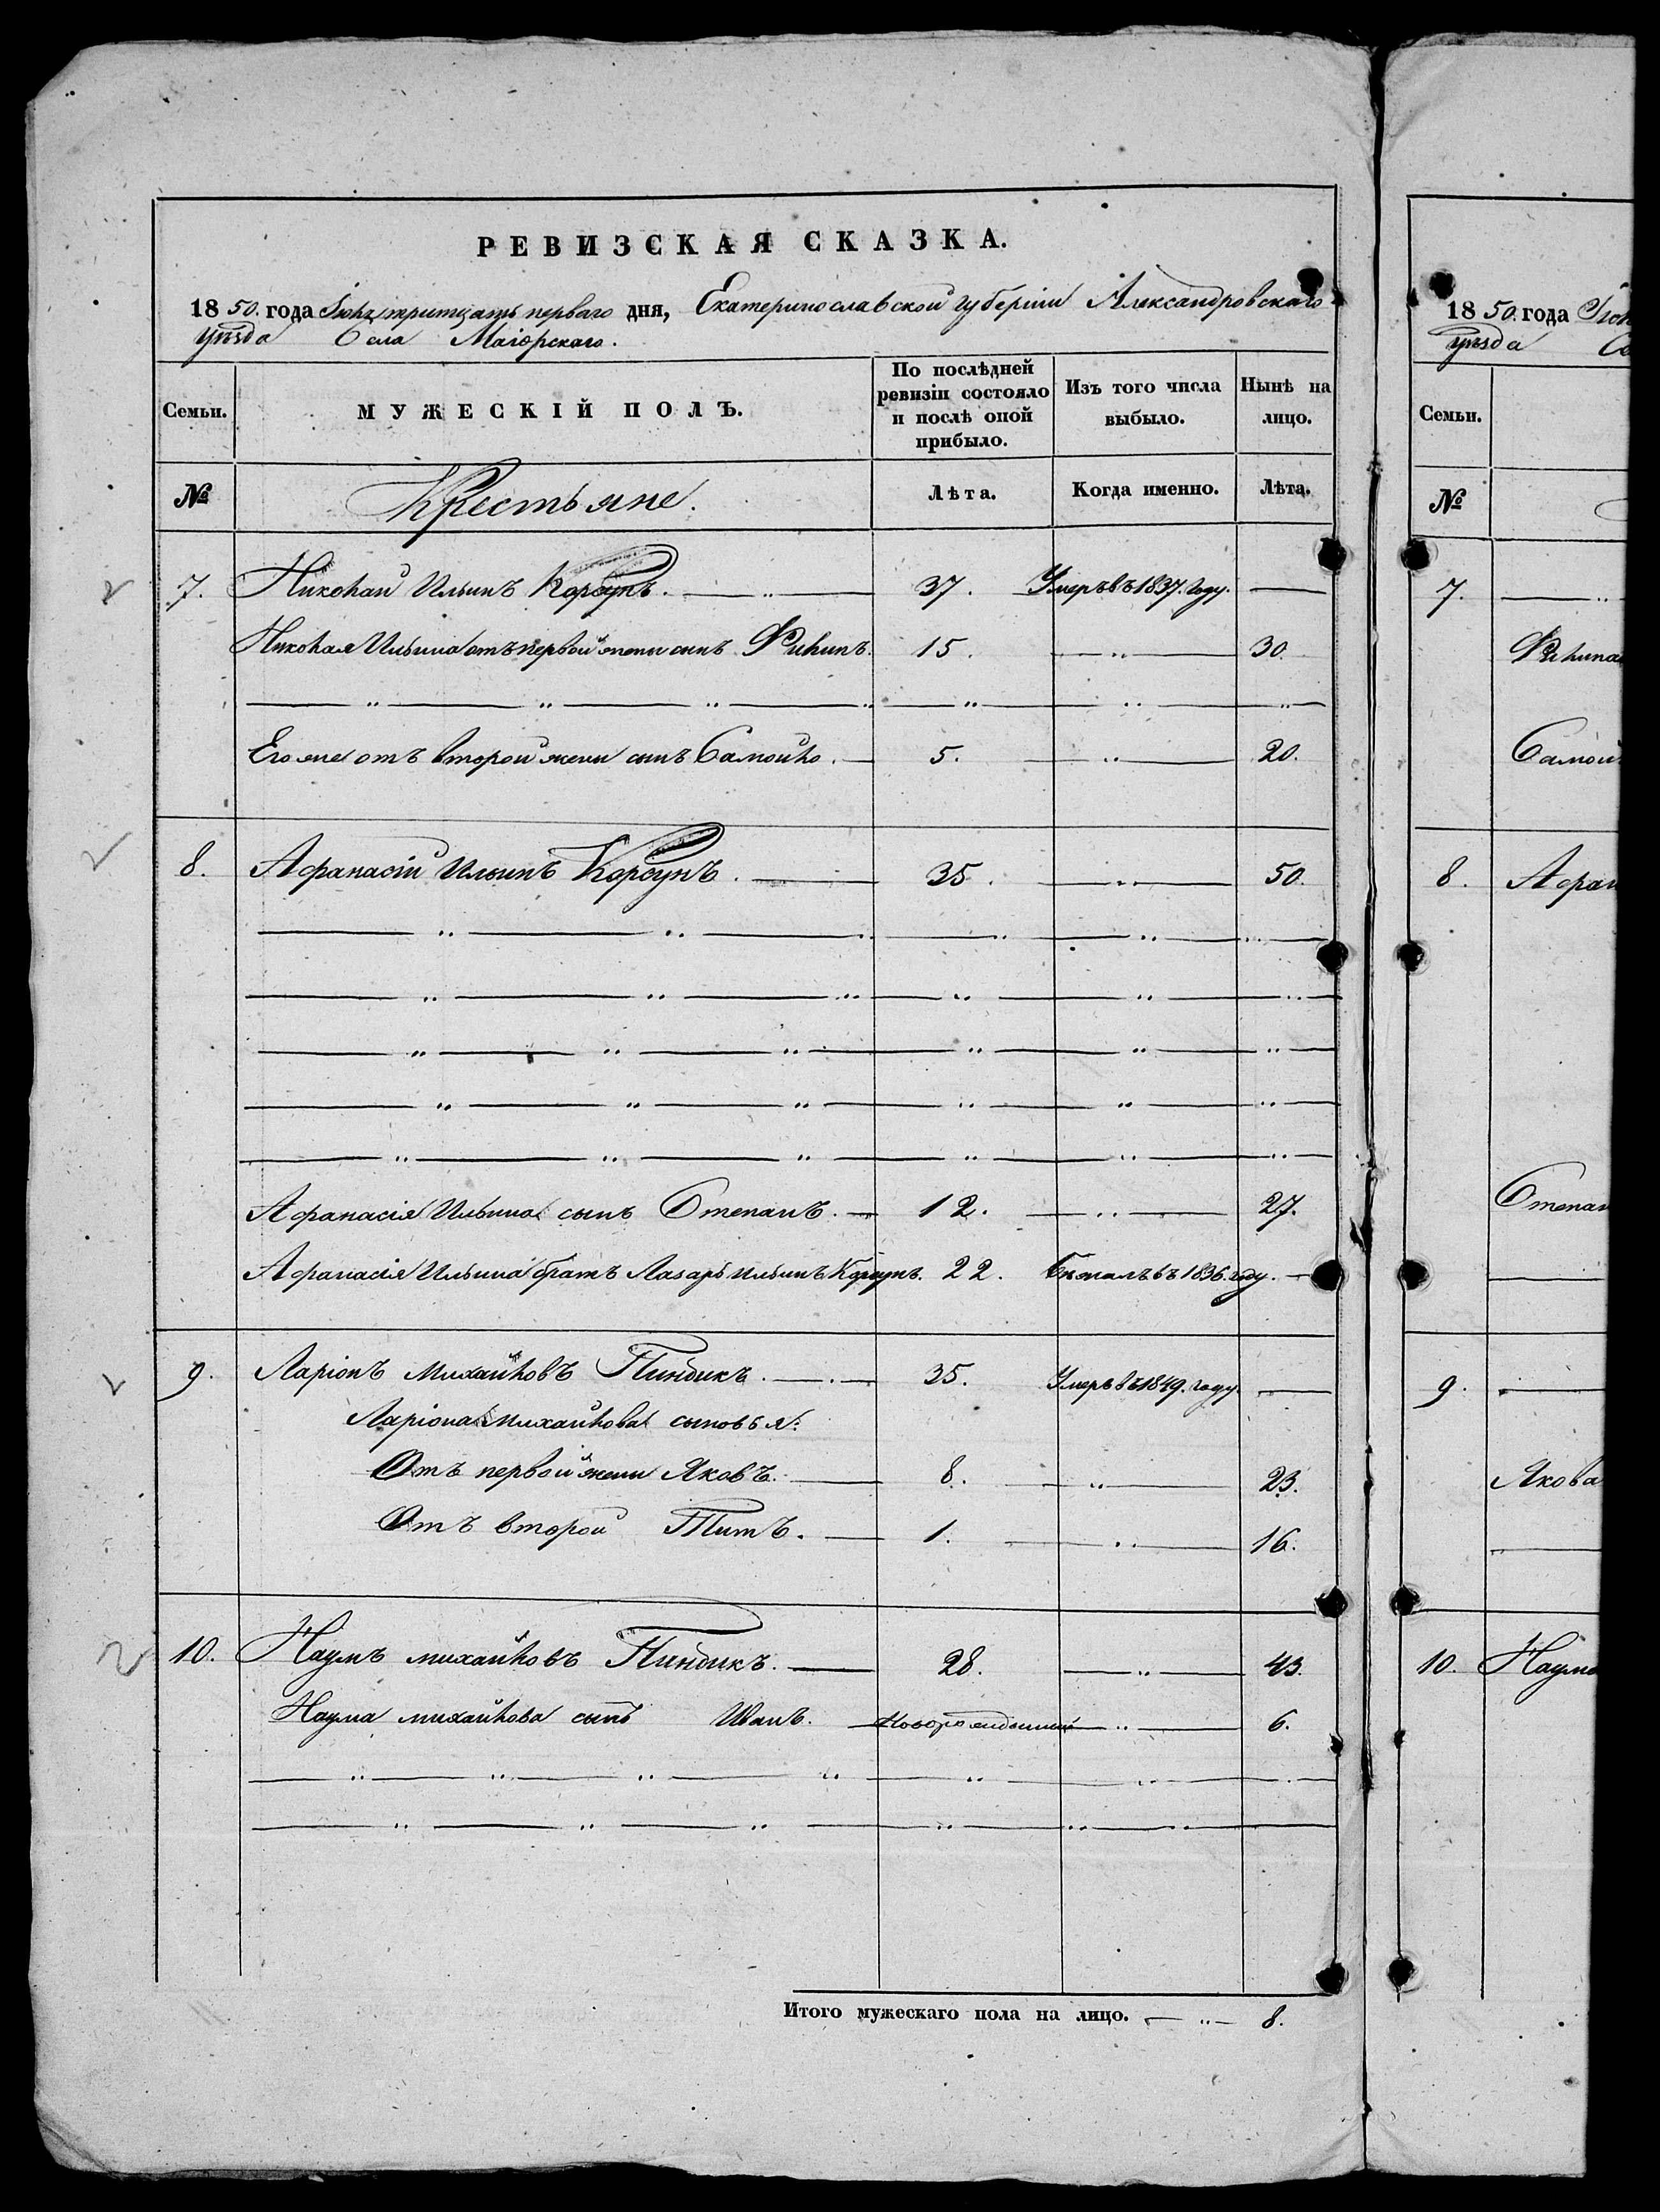 РЕВИЗСКАЯ СКАЗКА.
1850. года Іюля тритцать перваго дня, Екатеринославской губерніи Александровскаго
уѣзда Села Маіорскаго.
Семьи. МУЖЕСКІЙ ПОЛЪ. По послѣдней ревизіи состояло и послѣ оной прибыло. Изъ того числа выбыло. Нынѣ на лицо.
№ Крестьяне. Лѣта. Когда именно. Лѣта.
7. Николай Ильинъ Корсунъ. 37. Умеръ въ 1837. году.
Николая Ильина отъ первой жены сынъ Филипъ. 15. 30.
Его же отъ второй жены сынъ Самойло. 5. 20.
8. Афанасій Ильинъ Корсунъ. 35. 50.
Афанасія Ильина сынъ Степанъ. 12. 27.
Афанасія Ильина братъ Лазарь Ильинъ Корсунъ. 22. Бѣжалъ въ 1836. году.
9. Ларіонъ Михайловъ Пиндикъ. 35. Умеръ въ 1849. году.
Ларіона Михайлова сыновья:
Отъ первой жены Яковъ. 8. 23.
Отъ второй Титъ. 1. 16.
10. Наумъ михайловъ Пиндикъ. 28. 43.
Наума михайлова сынъ Иванъ. Новорожденный 6.
Итого мужескаго пола на лицо. 8.
1850. года
уѣзда
Семьи.
№
7.
8.
9.
Якова
10. Наума